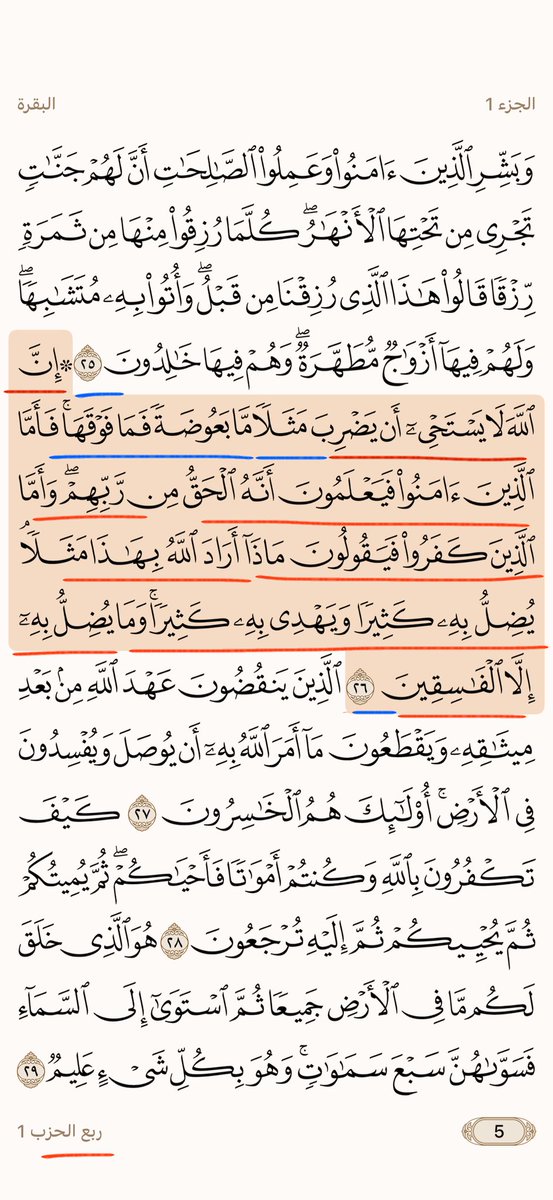 الجزء 1
البقرة
وَبَشِّرِ ٱلَّذِينَ ءَامَنُوا۟ وَعَمِلُوا۟ ٱلصَّـٰلِحَـٰتِ أَنَّ لَهُمْ جَنَّـٰتٍ
تَجْرِى مِن تَحْتِهَا ٱلْأَنْهَـٰرُ ۖ كُلَّمَا رُزِقُوا۟ مِنْهَا مِن ثَمَرَةٍ
رِّزْقًا قَالُوا۟ هَـٰذَا ٱلَّذِى رُزِقْنَا مِن قَبْلُ ۖ وَأُتُوا۟ بِهِۦ مُتَشَـٰبِهًا ۖ
وَلَهُمْ فِيهَآ أَزْوَٰجٌ مُّطَهَّرَةٌ ۖ وَهُمْ فِيهَا خَـٰلِدُونَ ٢٥ * إِنَّ
ٱللَّهَ لَا يَسْتَحْىِۦٓ أَن يَضْرِبَ مَثَلًا مَّا بَعُوضَةً فَمَا فَوْقَهَا ۚ فَأَمَّا
ٱلَّذِينَ ءَامَنُوا۟ فَيَعْلَمُونَ أَنَّهُ ٱلْحَقُّ مِن رَّبِّهِمْ ۖ وَأَمَّا
ٱلَّذِينَ كَفَرُوا۟ فَيَقُولُونَ مَاذَآ أَرَادَ ٱللَّهُ بِهَـٰذَا مَثَلًا ۘ
يُضِلُّ بِهِۦ كَثِيرًا وَيَهْدِى بِهِۦ كَثِيرًا ۚ وَمَا يُضِلُّ بِهِۦٓ
إِلَّا ٱلْفَـٰسِقِينَ ٢٦ ٱلَّذِينَ يَنقُضُونَ عَهْدَ ٱللَّهِ مِنۢ بَعْدِ
مِيثَـٰقِهِۦ وَيَقْطَعُونَ مَآ أَمَرَ ٱللَّهُ بِهِۦٓ أَن يُوصَلَ وَيُفْسِدُونَ
فِى ٱلْأَرْضِ ۚ أُو۟لَـٰٓئِكَ هُمُ ٱلْخَـٰسِرُونَ ٢٧ كَيْفَ
تَكْفُرُونَ بِٱللَّهِ وَكُنتُمْ أَمْوَٰتًا فَأَحْيَـٰكُمْ ۖ ثُمَّ يُمِيتُكُمْ
ثُمَّ يُحْيِيكُمْ ثُمَّ إِلَيْهِ تُرْجَعُونَ ٢٨ هُوَ ٱلَّذِى خَلَقَ
لَكُم مَّا فِى ٱلْأَرْضِ جَمِيعًا ثُمَّ ٱسْتَوَىٰٓ إِلَى ٱلسَّمَآءِ
فَسَوَّىٰهُنَّ سَبْعَ سَمَـٰوَٰتٍ ۚ وَهُوَ بِكُلِّ شَىْءٍ عَلِيمٌ ٢٩
5
ربع الحزب 1